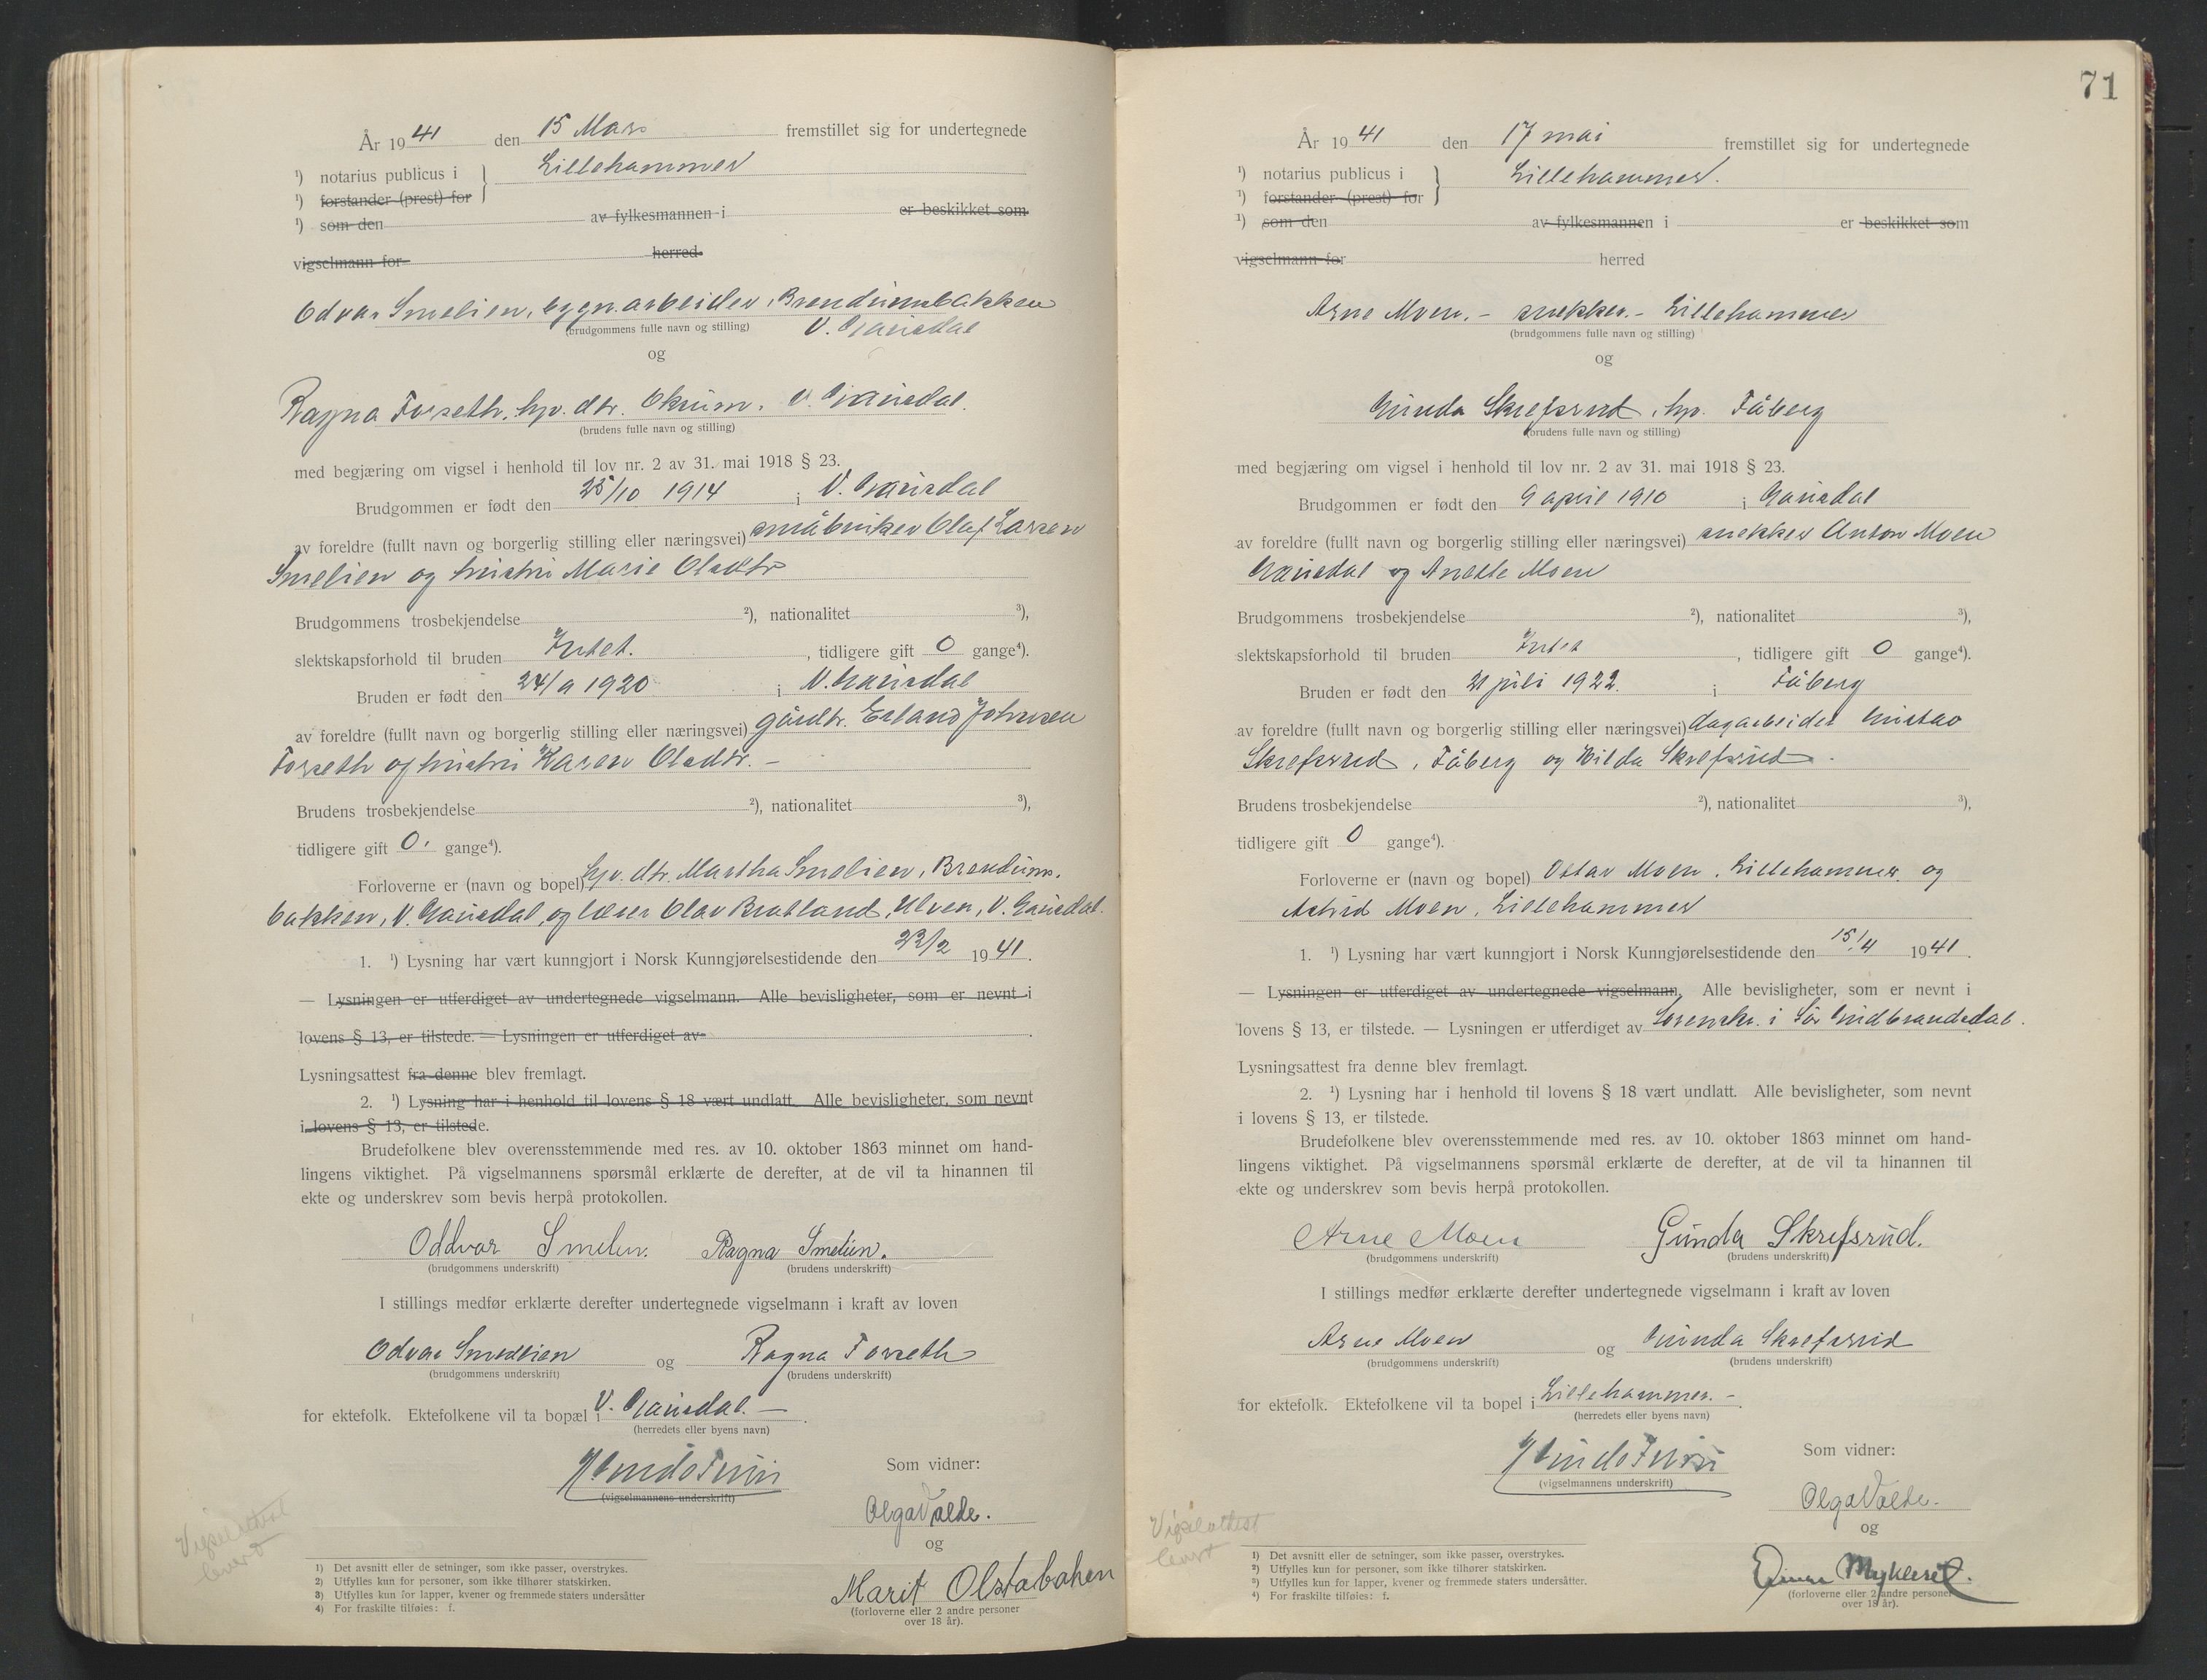 År 1941 den 15 Mars fremstillet sig for undertegnede
¹) notarius publicus i } Lillehammer
¹) forstander (prest) for
¹) som den av fylkesmannen i er beskikket som
vigselmann for herred
Odvar Smelien, bygn.arbeider, Brendumsbakken
(brudgommens fulle navn og stilling) V. Gausdal
og
Ragna Forseth, hj. dtr. Okrum, V. Gausdal.
(brudens fulle navn og stilling)
med begjæring om vigsel i henhold til lov nr. 2 av 31. mai 1918 § 23.
Brudgommen er født den 25/10 1914 i V. Gausdal
av foreldre (fullt navn og borgerlig stilling eller næringsvei) småbruker Olaf Larsen
Smelien og hustru Marie Olsdtr
Brudgommens trosbekjendelse ²), nationalitet ³),
slektskapsforhold til bruden Intet. , tidligere gift 0 gange⁴).
Bruden er født den 24/9 1920 i V. Gausdal
av foreldre (fullt navn og borgerlig stilling eller næringsvei) gårdbr. Erland Johnsen
Forseth og hustru Karen Olsdtr. –
Brudens trosbekjendelse ²), nationalitet ³),
tidligere gift 0. gange⁴).
Forloverne er (navn og bopel) hj. dtr. Martha Smelien, Brendums-
bakken, V. Gausdal, og lærer Olav Bratland, Ulven, V. Gausdal.
1. ¹) Lysning har vært kunngjort i Norsk Kunngjørelsestidende den 22/2 1941.
— Lysningen er utferdiget av undertegnede vigselmann. Alle bevisligheter, som er nevnt i
lovens § 13, er tilstede. — Lysningen er utferdiget av .
Lysningsattest fra denne blev fremlagt.
2. ¹) Lysning har i henhold til lovens § 18 vært undlatt. Alle bevisligheter, som nevnt
i lovens § 13, er tilstede.
Brudefolkene blev overensstemmende med res. av 10. oktober 1863 minnet om hand-
lingens viktighet. På vigselmannens spørsmål erklærte de derefter, at de vil ta hinannen til
ekte og underskrev som bevis herpå protokollen.
Oddvar Smelien. Ragna Smelien.
(brudgommens underskrift) (brudens underskrift)
I stillings medfør erklærte derefter undertegnede vigselmann i kraft av loven
Odvar Smelien og Ragna Forseth
(brudgommens underskrift) (brudens underskrift)
for ektefolk. Ektefolkene vil ta bopæl i V. Gausdal. —
(herredets eller byens navn)
(vigselmannens underskrift)
Som vidner:
Olga Valde.
og
Marit Olstabaken
(forloverne eller 2 andre personer
over 18 år).
Vigselattest
levert
1) Det avsnitt eller de setninger, som ikke passer, overstrykes.
2) Utfylles kun for personer, som ikke tilhører statskirken.
3) Utfylles kun for lapper, kvener og fremmede staters undersåtter
4) For fraskilte tilføies: f.
71
År 1941 den 17 mai fremstillet sig for undertegnede
¹) notarius publicus i } Lillehammer.
¹) forstander (prest) for
¹) som den av fylkesmannen i er beskikket som
vigselmann for herred
Arne Moen. – snekker. – Lillehammer
(brudgommens fulle navn og stilling)
og
Gunda Skrefsrud, hj. Fåberg
(brudens fulle navn og stilling)
med begjæring om vigsel i henhold til lov nr. 2 av 31. mai 1918 § 23.
Brudgommen er født den 9 april 1910 i Gausdal
av foreldre (fullt navn og borgerlig stilling eller næringsvei) snekker Anton Moen
Gausdal og Anette Moen
Brudgommens trosbekjendelse ²), nationalitet ³),
slektskapsforhold til bruden Intet , tidligere gift 0 gange⁴).
Bruden er født den 21 juli 1922. i Fåberg
av foreldre (fullt navn og borgerlig stilling eller næringsvei) dagarbeider Gustav
Skrefsrud, Fåberg og Hilda Skrefsrud.
Brudens trosbekjendelse ²), nationalitet ³),
tidligere gift 0 gange⁴).
Forloverne er (navn og bopel) Ottar Moen, Lillehammer og
Astrid Moen, Lillehammer
1. ¹) Lysning har vært kunngjort i Norsk Kunngjørelsestidende den 15/4 1941.
— Lysningen er utferdiget av undertegnede vigselmann, Alle bevisligheter, som er nevnt i
lovens § 13, er tilstede. — Lysningen er utferdiget av Sorenskr. i Sør Gudbrandsdal.
Lysningsattest fra denne blev fremlagt.
2. ¹) Lysning har i henhold til lovens § 18 vært undlatt. Alle bevisligheter, som nevnt
i lovens § 13, er tilstede.
Brudefolkene blev overensstemmende med res. av 10. oktober 1863 minnet om hand-
lingens viktighet. På vigselmannens spørsmål erklærte de derefter, at de vil ta hinannen til
ekte og underskrev som bevis herpå protokollen.
Arne Moen Gunda Skrefsrud.
(brudgommens underskrift) (brudens underskrift)
I stillings medfør erklærte derefter undertegnede vigselmann i kraft av loven
Arne Moen og Gunda Skrefsrud
(brudgommens underskrift) (brudens underskrift)
for ektefolk. Ektefolkene vil ta bopel i Lillehammer. –
(herredets eller byens navn)
(vigselmannens underskrift)
Som vidner:
Olga Valde.
og
(forloverne eller 2 andre personer
over 18 år).
Vigselattest
levert
1) Det avsnitt eller de setninger, som ikke passer, overstrykes.
2) Utfylles kun for personer, som ikke tilhører statskirken.
3) Utfylles kun for lapper, kvener og fremmede staters undersåtter.
4) For fraskilte tilføies: f.